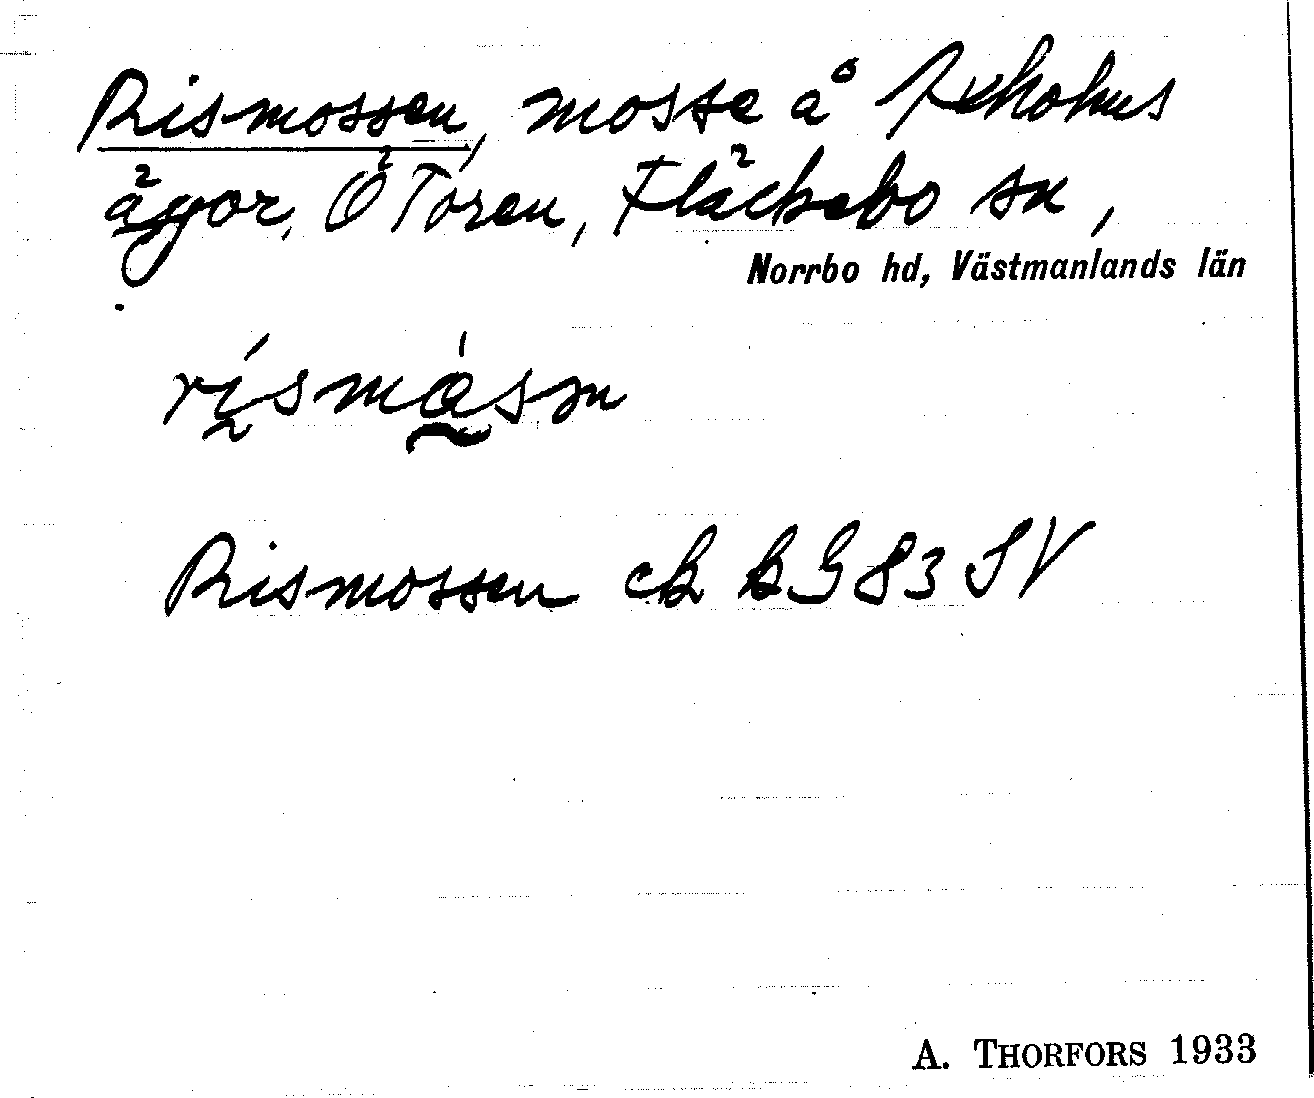 Rismossen, mosse å
ägor, Ö Tören, Fläckebo sn,
Norrbo hd, Västmanlands län
rismåsn
Rismossen ek bg 83 SV
A. THORFORS 1933